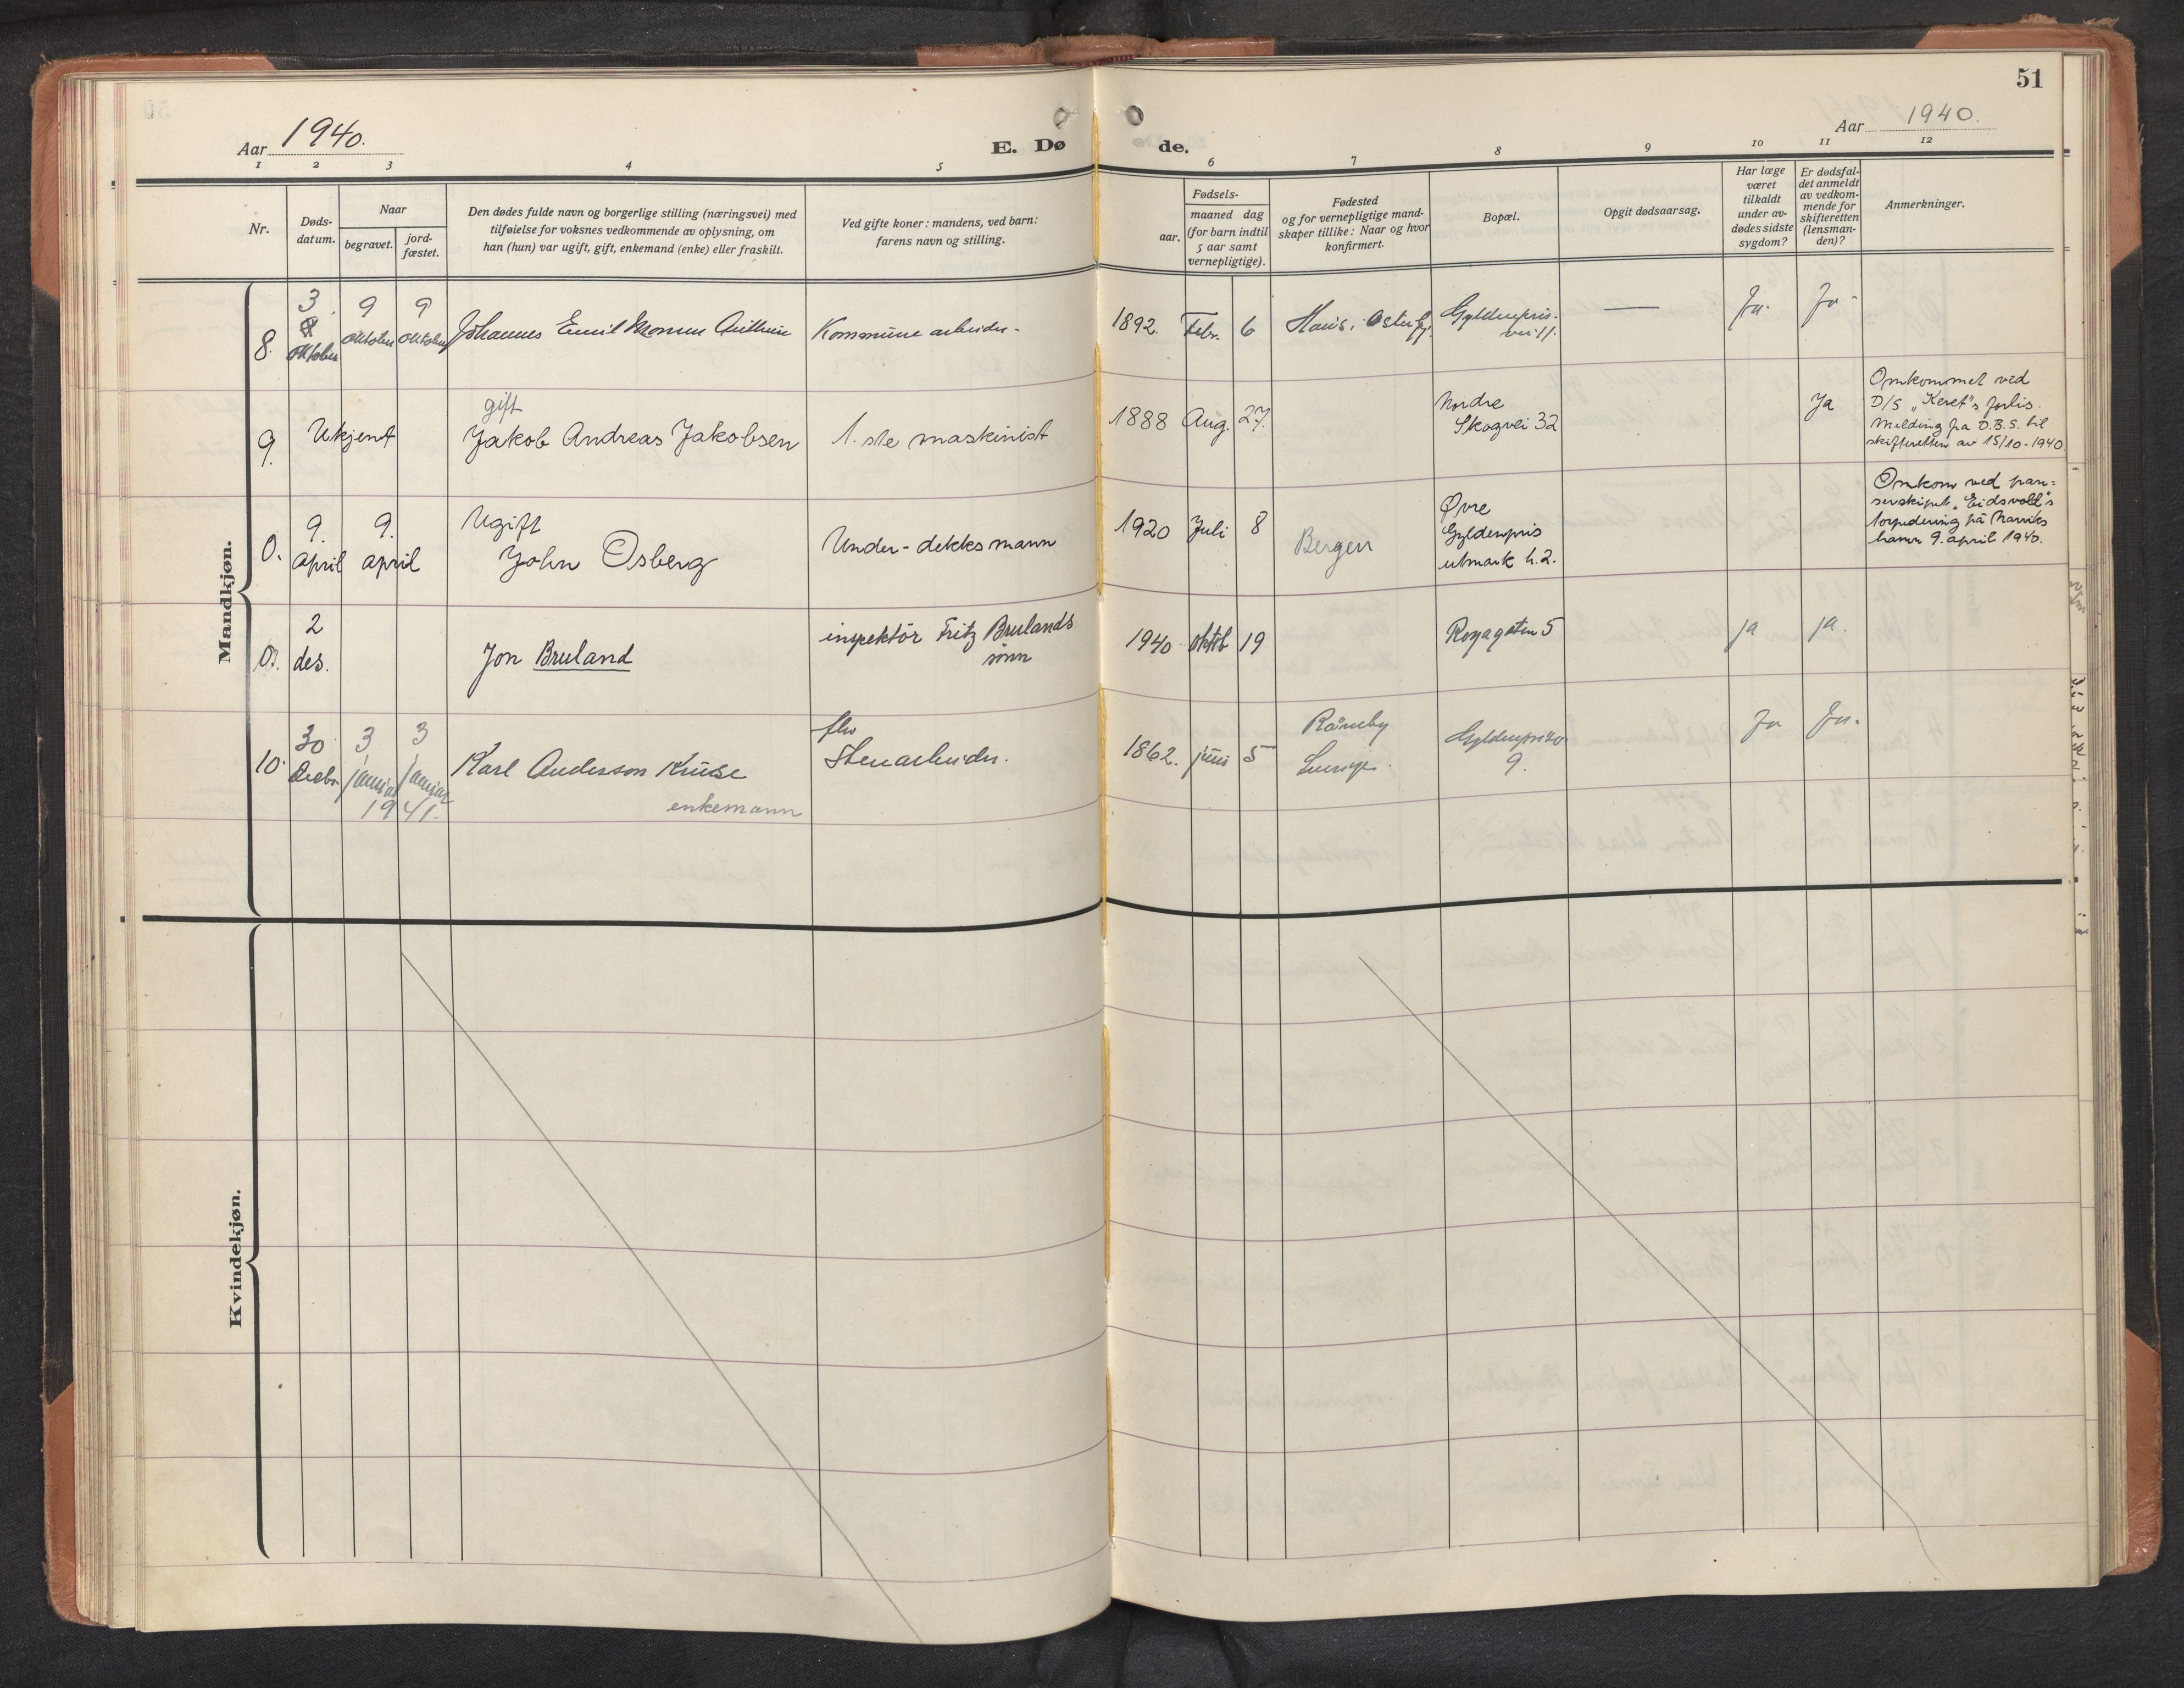 51
Aar 1940.
E. Dø de.
Aar 1940.
1 2 3 4 5 6 7 8 9 10 11 12
Nr.
Døds-
datum.
Naar
begravet.
jord-
fæstet.
Den dødes fulde navn og borgerlige stilling (næringsvei) med
tilføielse for voksnes vedkommende av oplysning, om
han (hun) var ugift, gift, enkemand (enke) eller fraskilt.
Ved gifte koner: mandens, ved barn:
farens navn og stilling.
Fødsels-
aar.
maaned dag
(for barn indtil
5 aar samt
vernepligtige).
Fødested
og for vernepligtige mand-
skaper tillike: Naar og hvor
konfirmert.
Bopæl.
Opgit dødsaarsag.
Har læge
været
tilkaldt
under av-
dødes sidste
sygdom?
Er dødsfal-
det anmeldt
av vedkom-
mende for
skifteretten
(lensman-
den)?
Anmerkninger.
Mandkjøn.
8.
3
oktober
9
oktober
9
oktober
Johannes Emil
Kommune arbeider.
1892. Febr. 6
Haus,
Gyldenpris-
vei 11.
—
Ja.
Ja -
9.
Ukjent
gift
Jakob Andreas Jakobsen
1. ste maskinist
1888 Aug. 27.
Nordre
Skogvei 32
Ja
Omkommet ved
D/S „Keret"s forlis.
Melding fra D.B.S. til
skifteretten av 15/10-1940
0.
9.
april
9.
april
Ugift
John Osberg
Under-dekksmann
1920 Juli 8
Bergen
Øvre
Gyldenpris
utmark h.2.
Omkom ved pan=
serskipet „Eidsvold"s
torpedering på Narviks
havn 9. april 1940.
0.
2
des.
Jon Bruland
inspektör Fritz Brulands
sønn
1940 oktob 19
5
ja
ja.
10.
30
Decbr.
3
januar
3
januar
1941.
Karl Anderson Kruse
enkemann
fhv
Stenarbeider.
1862. juni 5
Råneby
Sverige.
9.
Ja
Ja.
Kvindekjøn.